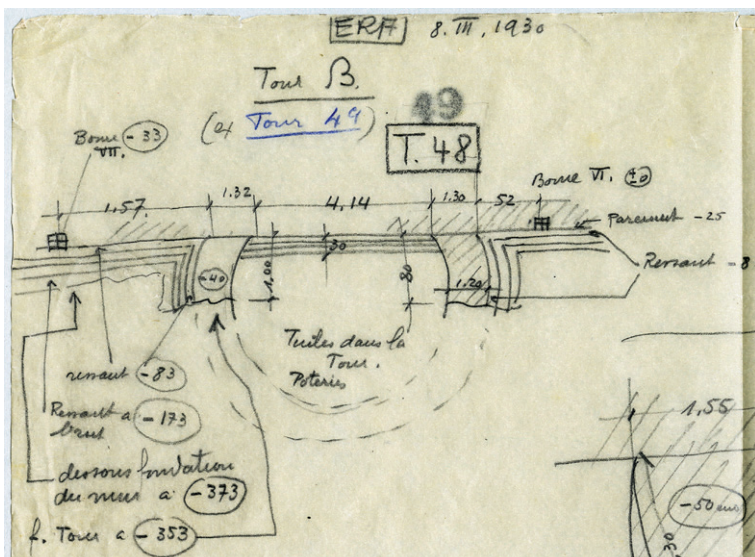 ERA 8.III.1930
Tour B.
49
(ex Tour 49)
T. 48
Borne VII. -33
Borne VI. ±0
1.57. 1.32 4.14 1.30 52
Parement -25
Ressaut -8
30
1,00
-40
80
1.20
Tuiles dans la
Tour.
Poteries
ressaut -83
Ressaut a
brut -173
1,55
dessous fondation
du mur a -373
-50
f. Tour a -353
30